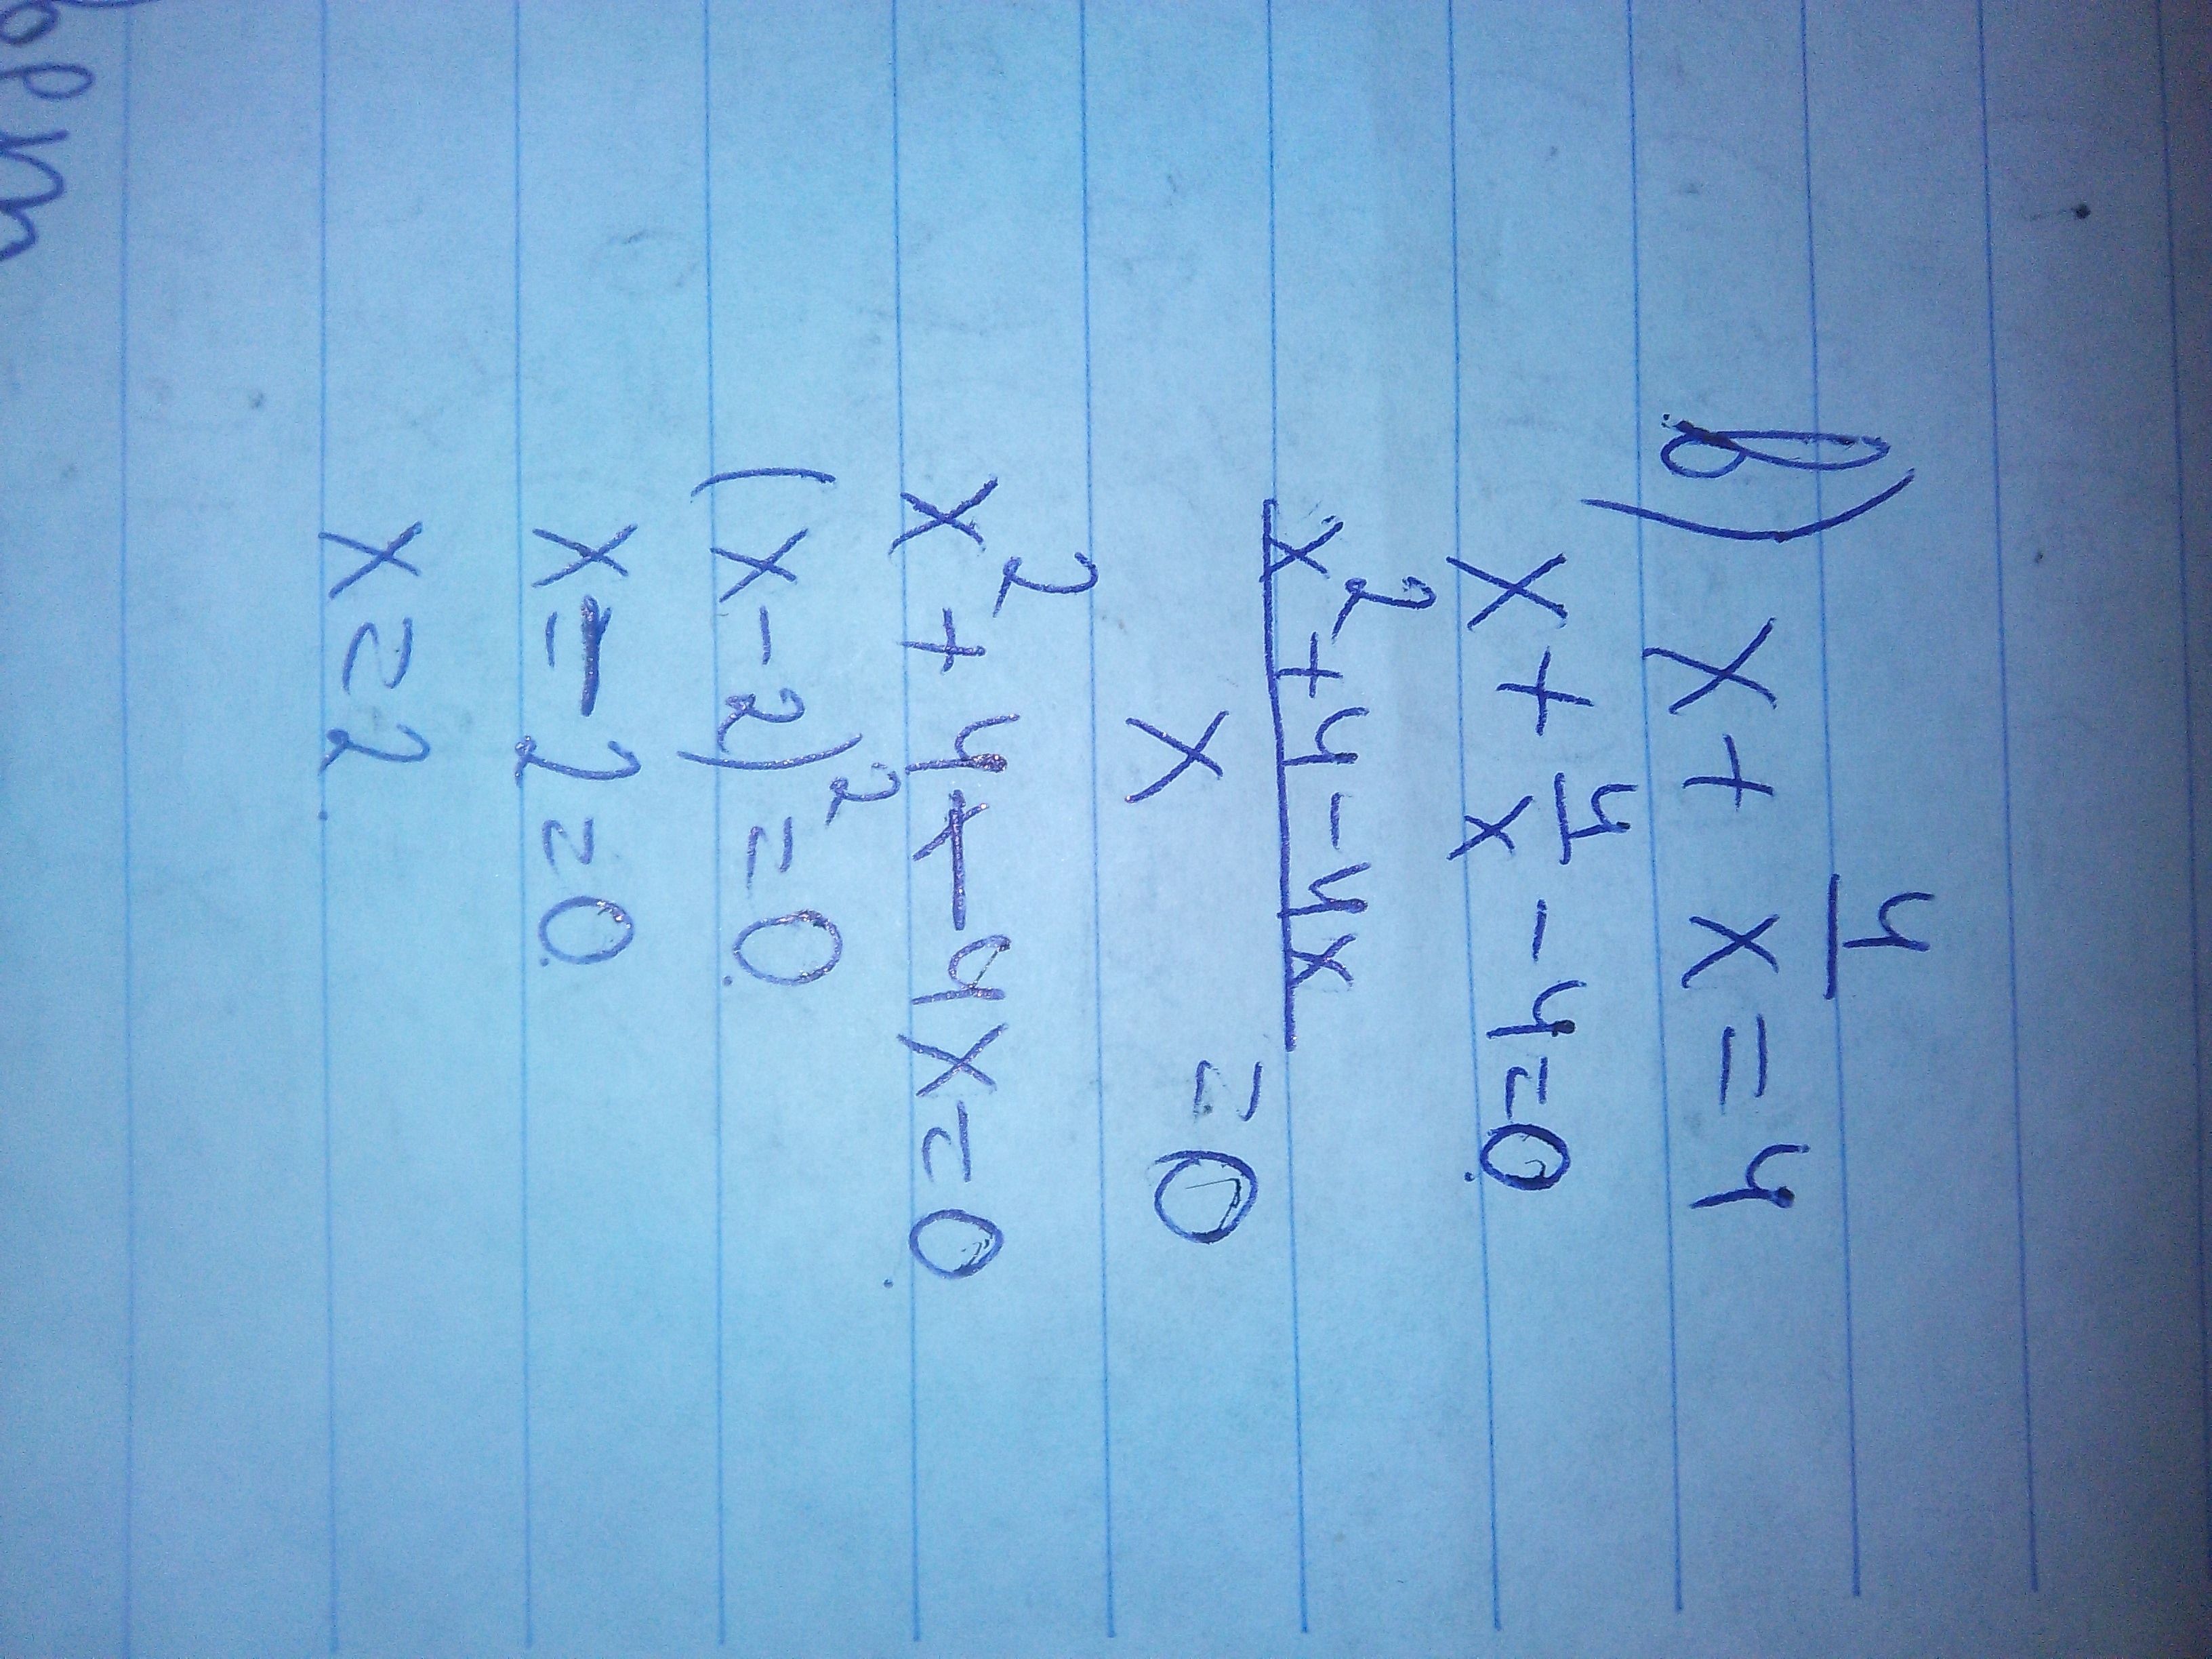 в) x + 4/x = 4
x + 4/x - 4 = 0
x² + 4 - 4x / x = 0
x² + 4 - 4x = 0
(x - 2)² = 0
x - 2 = 0
x = 2